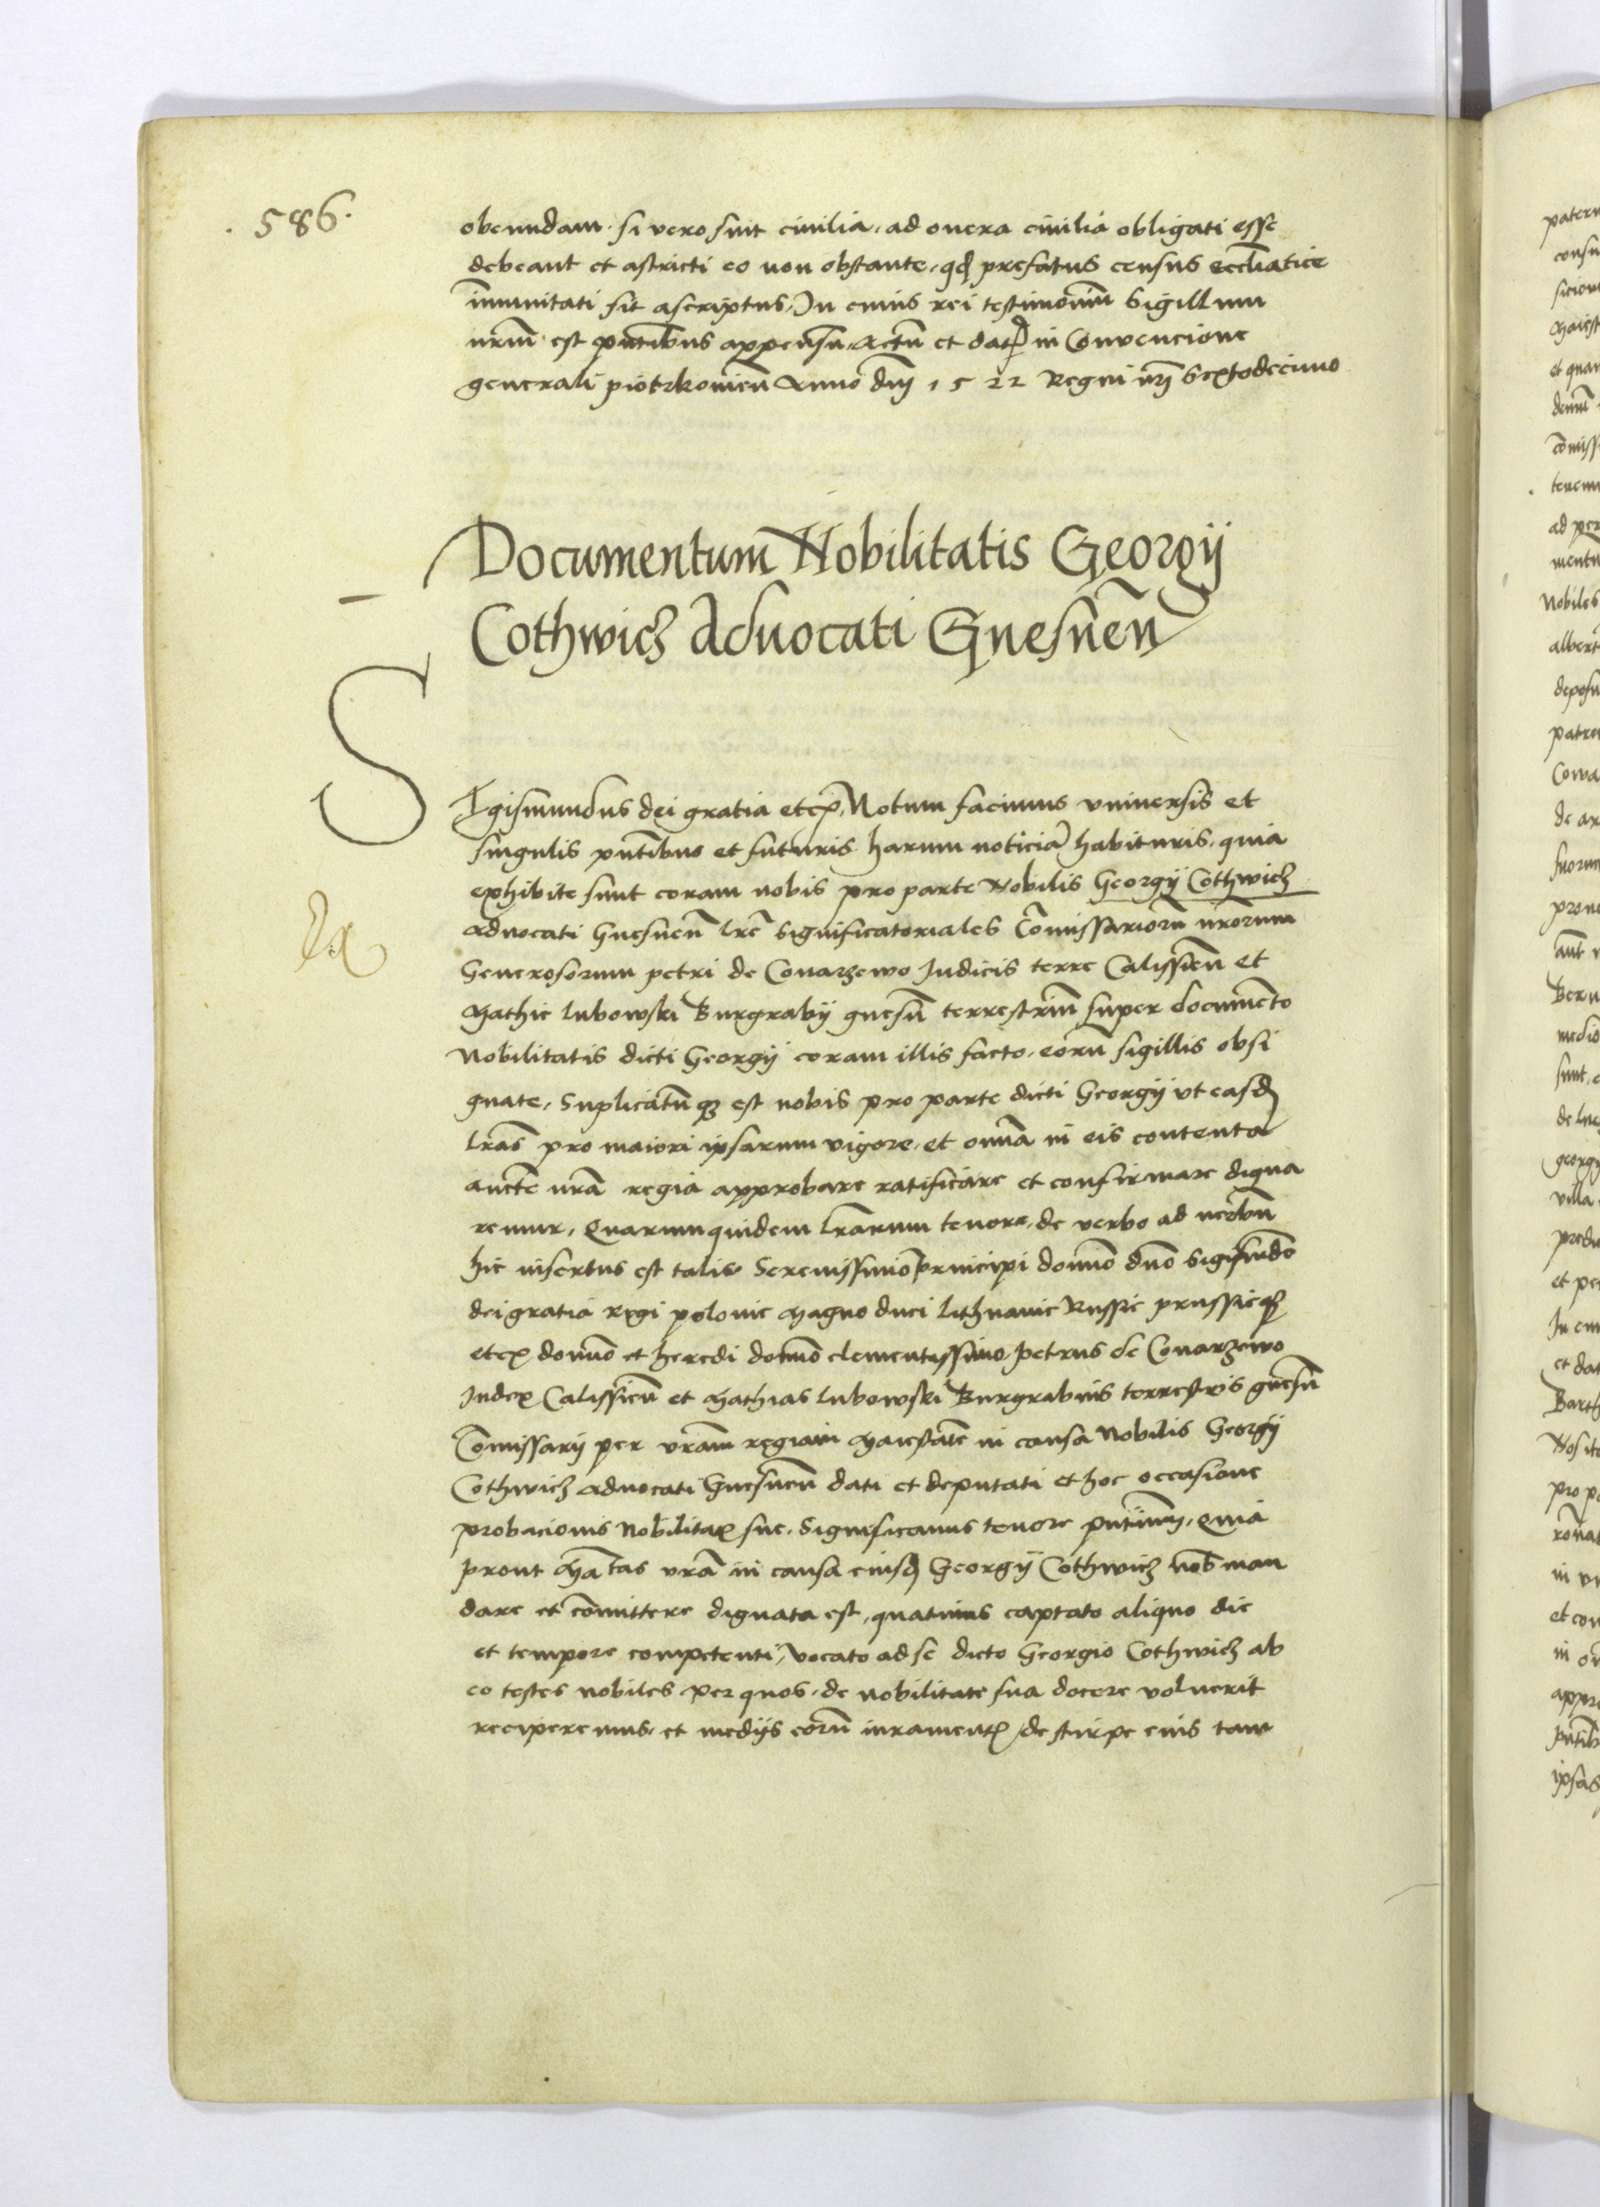 . 586 .
obeundam. si vero sint ciuilia, ad onera ciuilia obligati esse
debeant et astricti eo non obstante, qđ prefatus census eccl̄iatice
īmunitati sit ascriptus, In cuius rei testimoniū Sigillum
nr̄m est pn̄tibus appensū, Actū et dat in Convencione
generali piotrkovien̄ Anno dnj 1522 Regni nrj Sextodecimo
Documentum Nobilitatis Georgij
Cothwicz Aduocati Gnesnen̄
SIgismundus dei gratia etcʒ, Notum facimus vniuersis et
singulis pn̄tibus et futuris harum noticiā habituris, quia
exhibite sunt coram nobis pro parte Nobilis Georgij Cothwicz
aduocati Gnesnen̄ Lrē significatoriales Cōmissariorū nr̄orum
Generosorum petri de Conarzewo Iudicis terre Calissien̄ et
Mathie Lubowski Burgrabij gnesn̄ terrestriū super documēto
Nobilitatis dicti Georgij coram illis facto, eorū sigillis obsi
gnate, Suplicatūqʒ est nobis pro parte dicti Georgij vt easđ
Lrās pro maiori ipsarum vigore, et omīa in eis contenta
aucte nrā regia approbare ratificare et confirmare digna
remur, Quarumquidem Lrārum tenore, de verbo ad verbū
hic insertus est talis Serenissimo principi domīo dnō Sigismūdo
dei gratia regi polonie Magno duci Lithuanie Russie prussieqʒ
etcʒ domīo et heredi domīo clementissimo, petrus de Conarzewo
Iudex Calissien̄ et Mathias Lubowski Burgrabius terrestris gnesn̄
Cōmissarij per vrām regiam Maiestatē in causa Nobilis Georgij
Cothwicz aduocati Gnesnen̄ dati et deputati et hoc occasione
probacionis Nobilitatʒ sue, Significamus tenore pn̄tium, Quia
prout Matas vrā in causa eiusđ Georgij Cothwicz nob̄ man
dare et cōmittere dignata est, quatinus captato aliquo die
et tempore competenti, vocato ad se dicto Georgio Cothwicz ab
eo testes nobiles, per quos, de nobilitate sua docere voluerit
reciperemus, et medijs eorū iuramentʒ, de stirpe eius tam